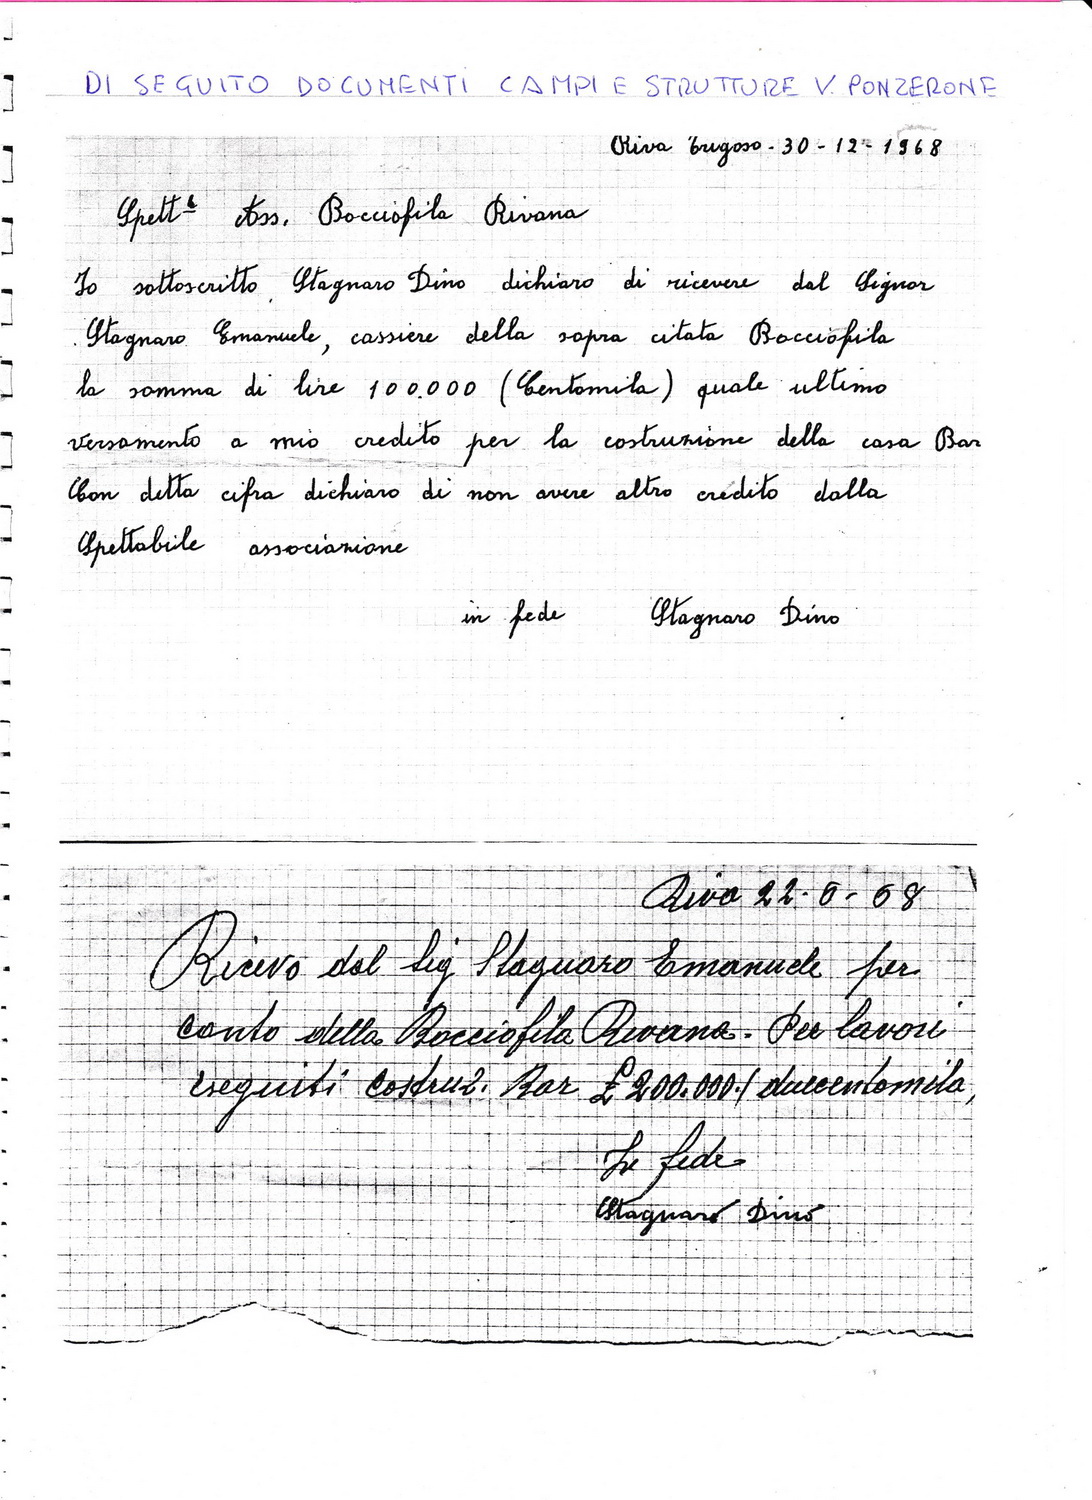 DI SEGUITO DOCUMENTI CAMPI E STRUTTURE V. PONZERONE
Riva Trigoso - 30 - 12 - 1968
Spett.le Ass. Bocciofila Rivana
Io sottoscritto Stagnaro Dino dichiaro di ricevere dal Signor
Stagnaro Emanuele, cassiere della sopra citata Bocciofila
la somma di lire 100.000 (Centomila) quale ultimo
versamento a mio credito per la costruzione della casa Bar
Con detta cifra dichiaro di non avere altro credito dalla
Spettabile associazione
in fede Stagnaro Dino
Riva 22-6-68
Ricevo dal Sig Stagnaro Emanuele per
conto della Bocciofila Rivana. Per lavori
eseguiti costruz. Bar £ 200.000./ duecentomila,
In fede
Stagnaro Dino